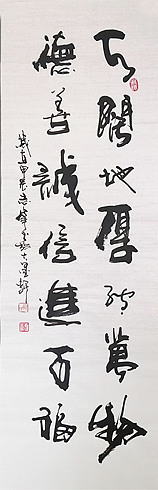 天闊地厚萬物
德善誠信進百福
歲在甲辰